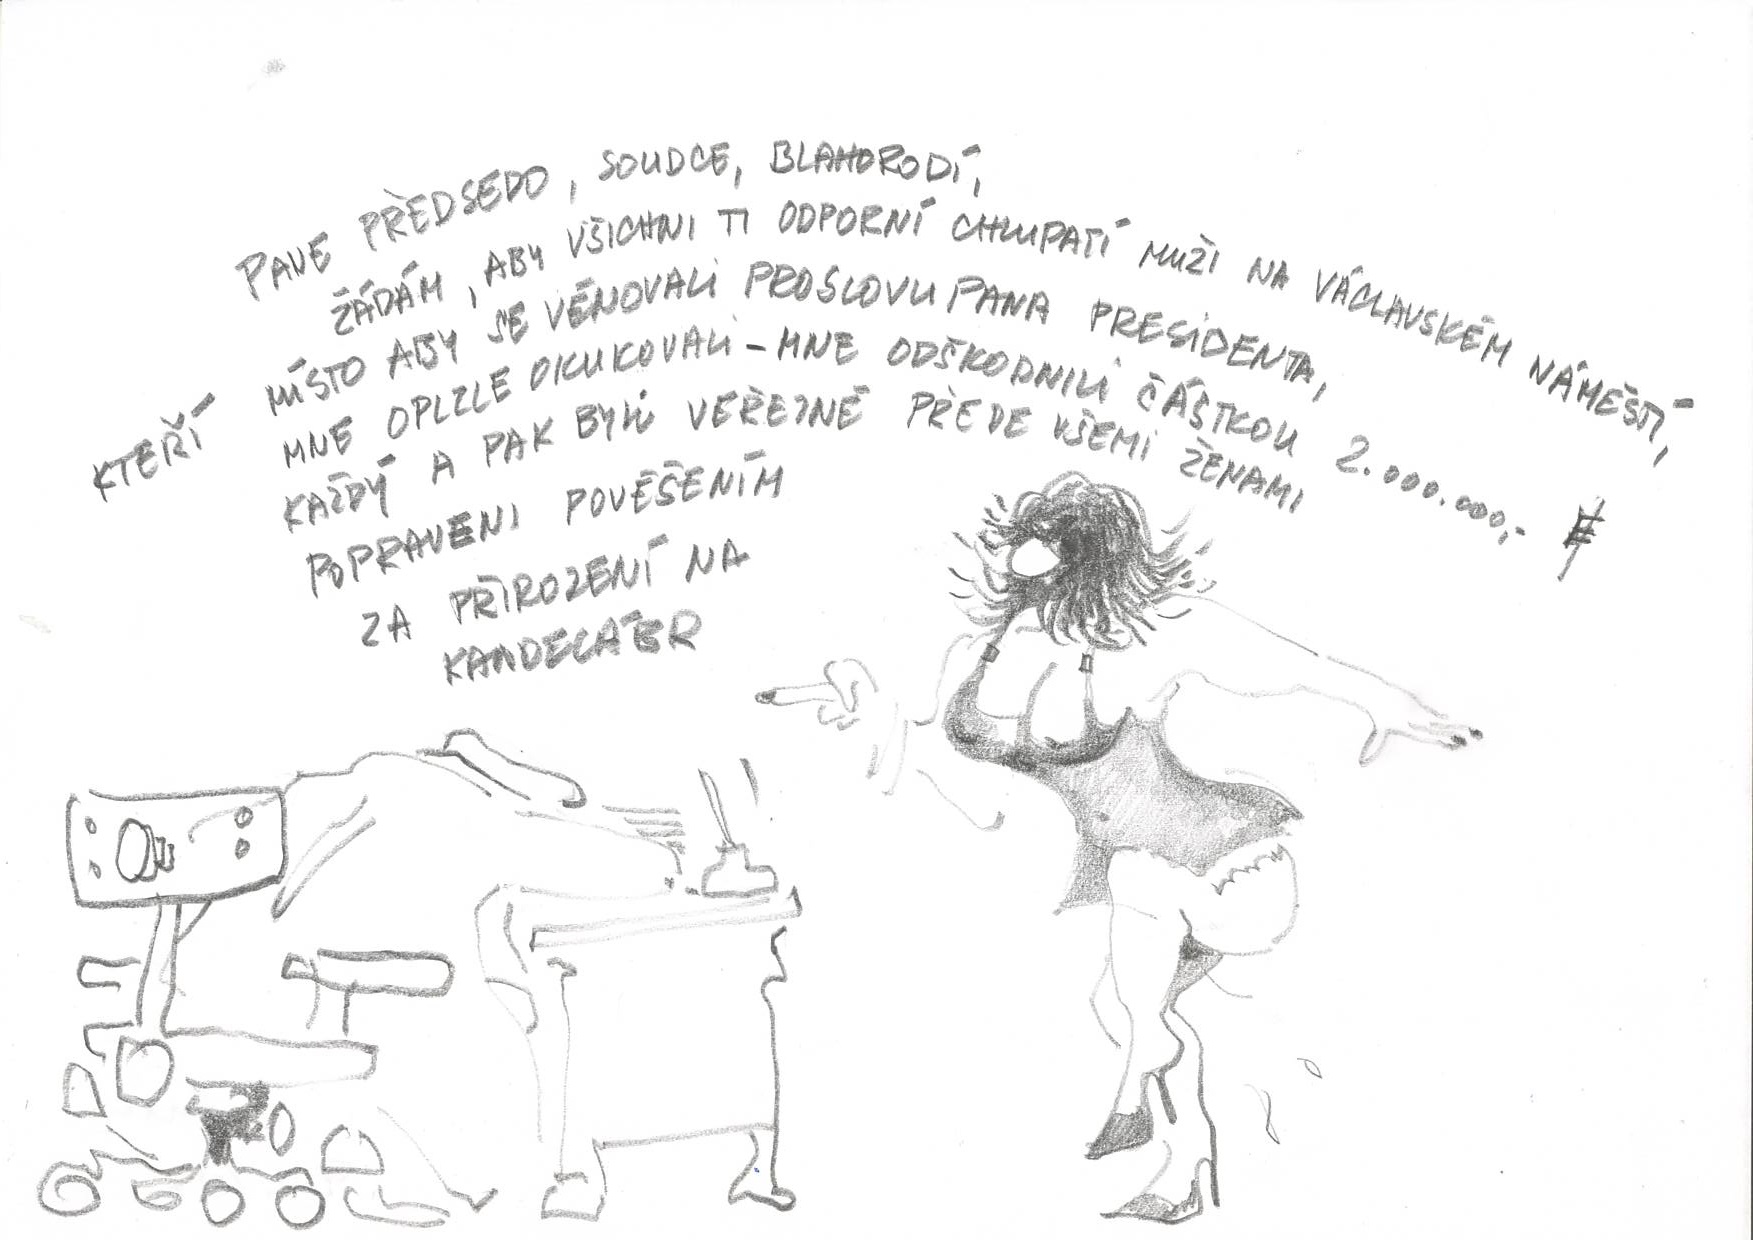 PANE PŘEDSEDO, SOUDCE, BLAHORODÍ,
ŽÁDÁM, ABY VŠICHNI TI ODPORNÍ CHLUPATÍ MUŽI NA VÁCLAVSKÉM NÁMĚSTÍ,
KTEŘÍ MÍSTO ABY SE VĚNOVALI PROSLOVU PANA PRESIDENTA,
MNE OPLZLE OKUKOVALI - MNE ODŠKODNILI ČÁSTKOU 2.000.000,-
KAŽDÝ A PAK BYLI VEŘEJNĚ PŘEDE VŠEMI ŽENAMI
POPRAVENI POVĚŠENÍM
ZA PŘIROZENÍ NA
KANDELÁBR